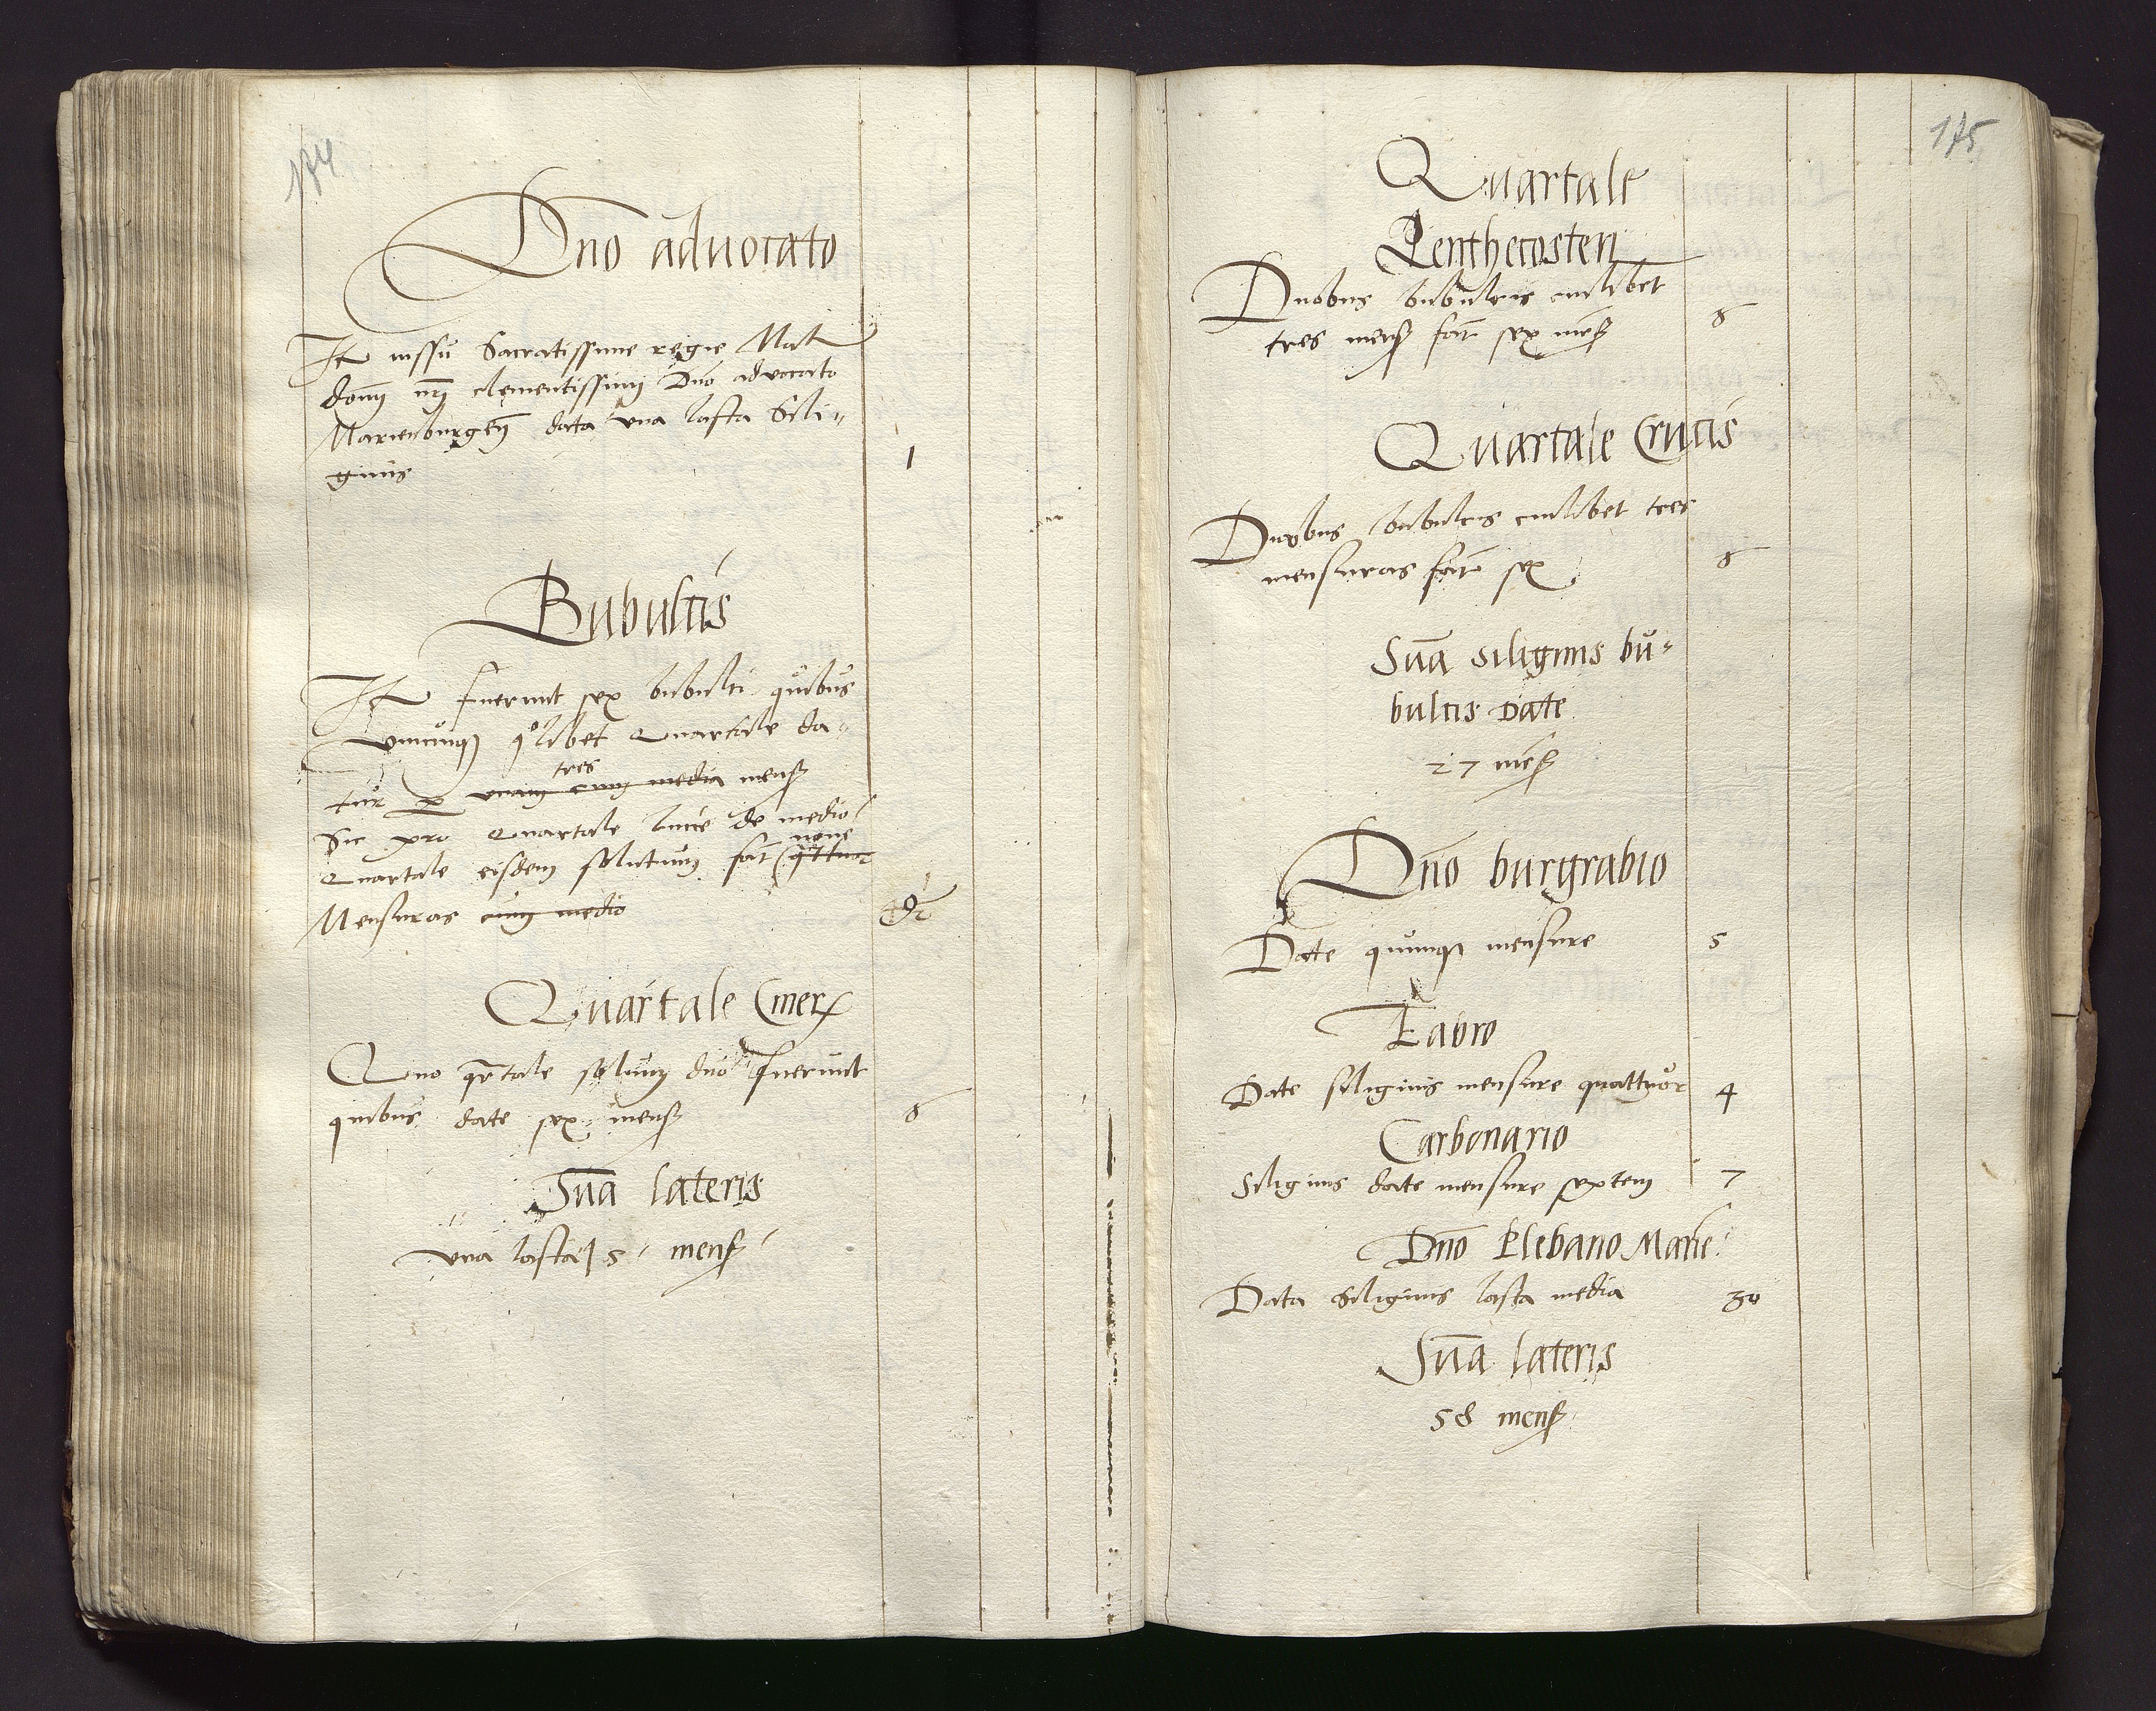 174
Dno aduocato
It iussu Sacratissime regie Mat
domi nri clementissimi Dno aduocato
Marienburgen data vna lasta Sili-
ginis
1
Bubulcis
It fuerunt sex bubulci quibus
vnicuiq quolibet Quartale da-
tur p tres
vnam cum media mens
Sic pro Quartale lucie de medio
Quartale eisdem solutum fac noue
quattuor
Mensuras cum medio
9
Quartale Ciner
Quo qrtale solum duo fuerunt
quibus date sex mens
6
Sua lateris
vna lasta 15 mens
175
Quartale
Penthecosten
Duobus bubulcis cuilibet
tres mens fac sex mens
6
Quartale Crucis
Duobus bubulcis cuilibet tres
mensuras fac sex
6
Sua siliginis bu-
bulcis Date
27 mens
Dno burgrabio
Date quinq mensure
5
Fabro
Date siliginis mensure quattuor
4
Carbonario
Siliginis date mensure septem
7
Dno Plebano Marie
Data Siliginis lasta media
30
Sua lateris
58 mens